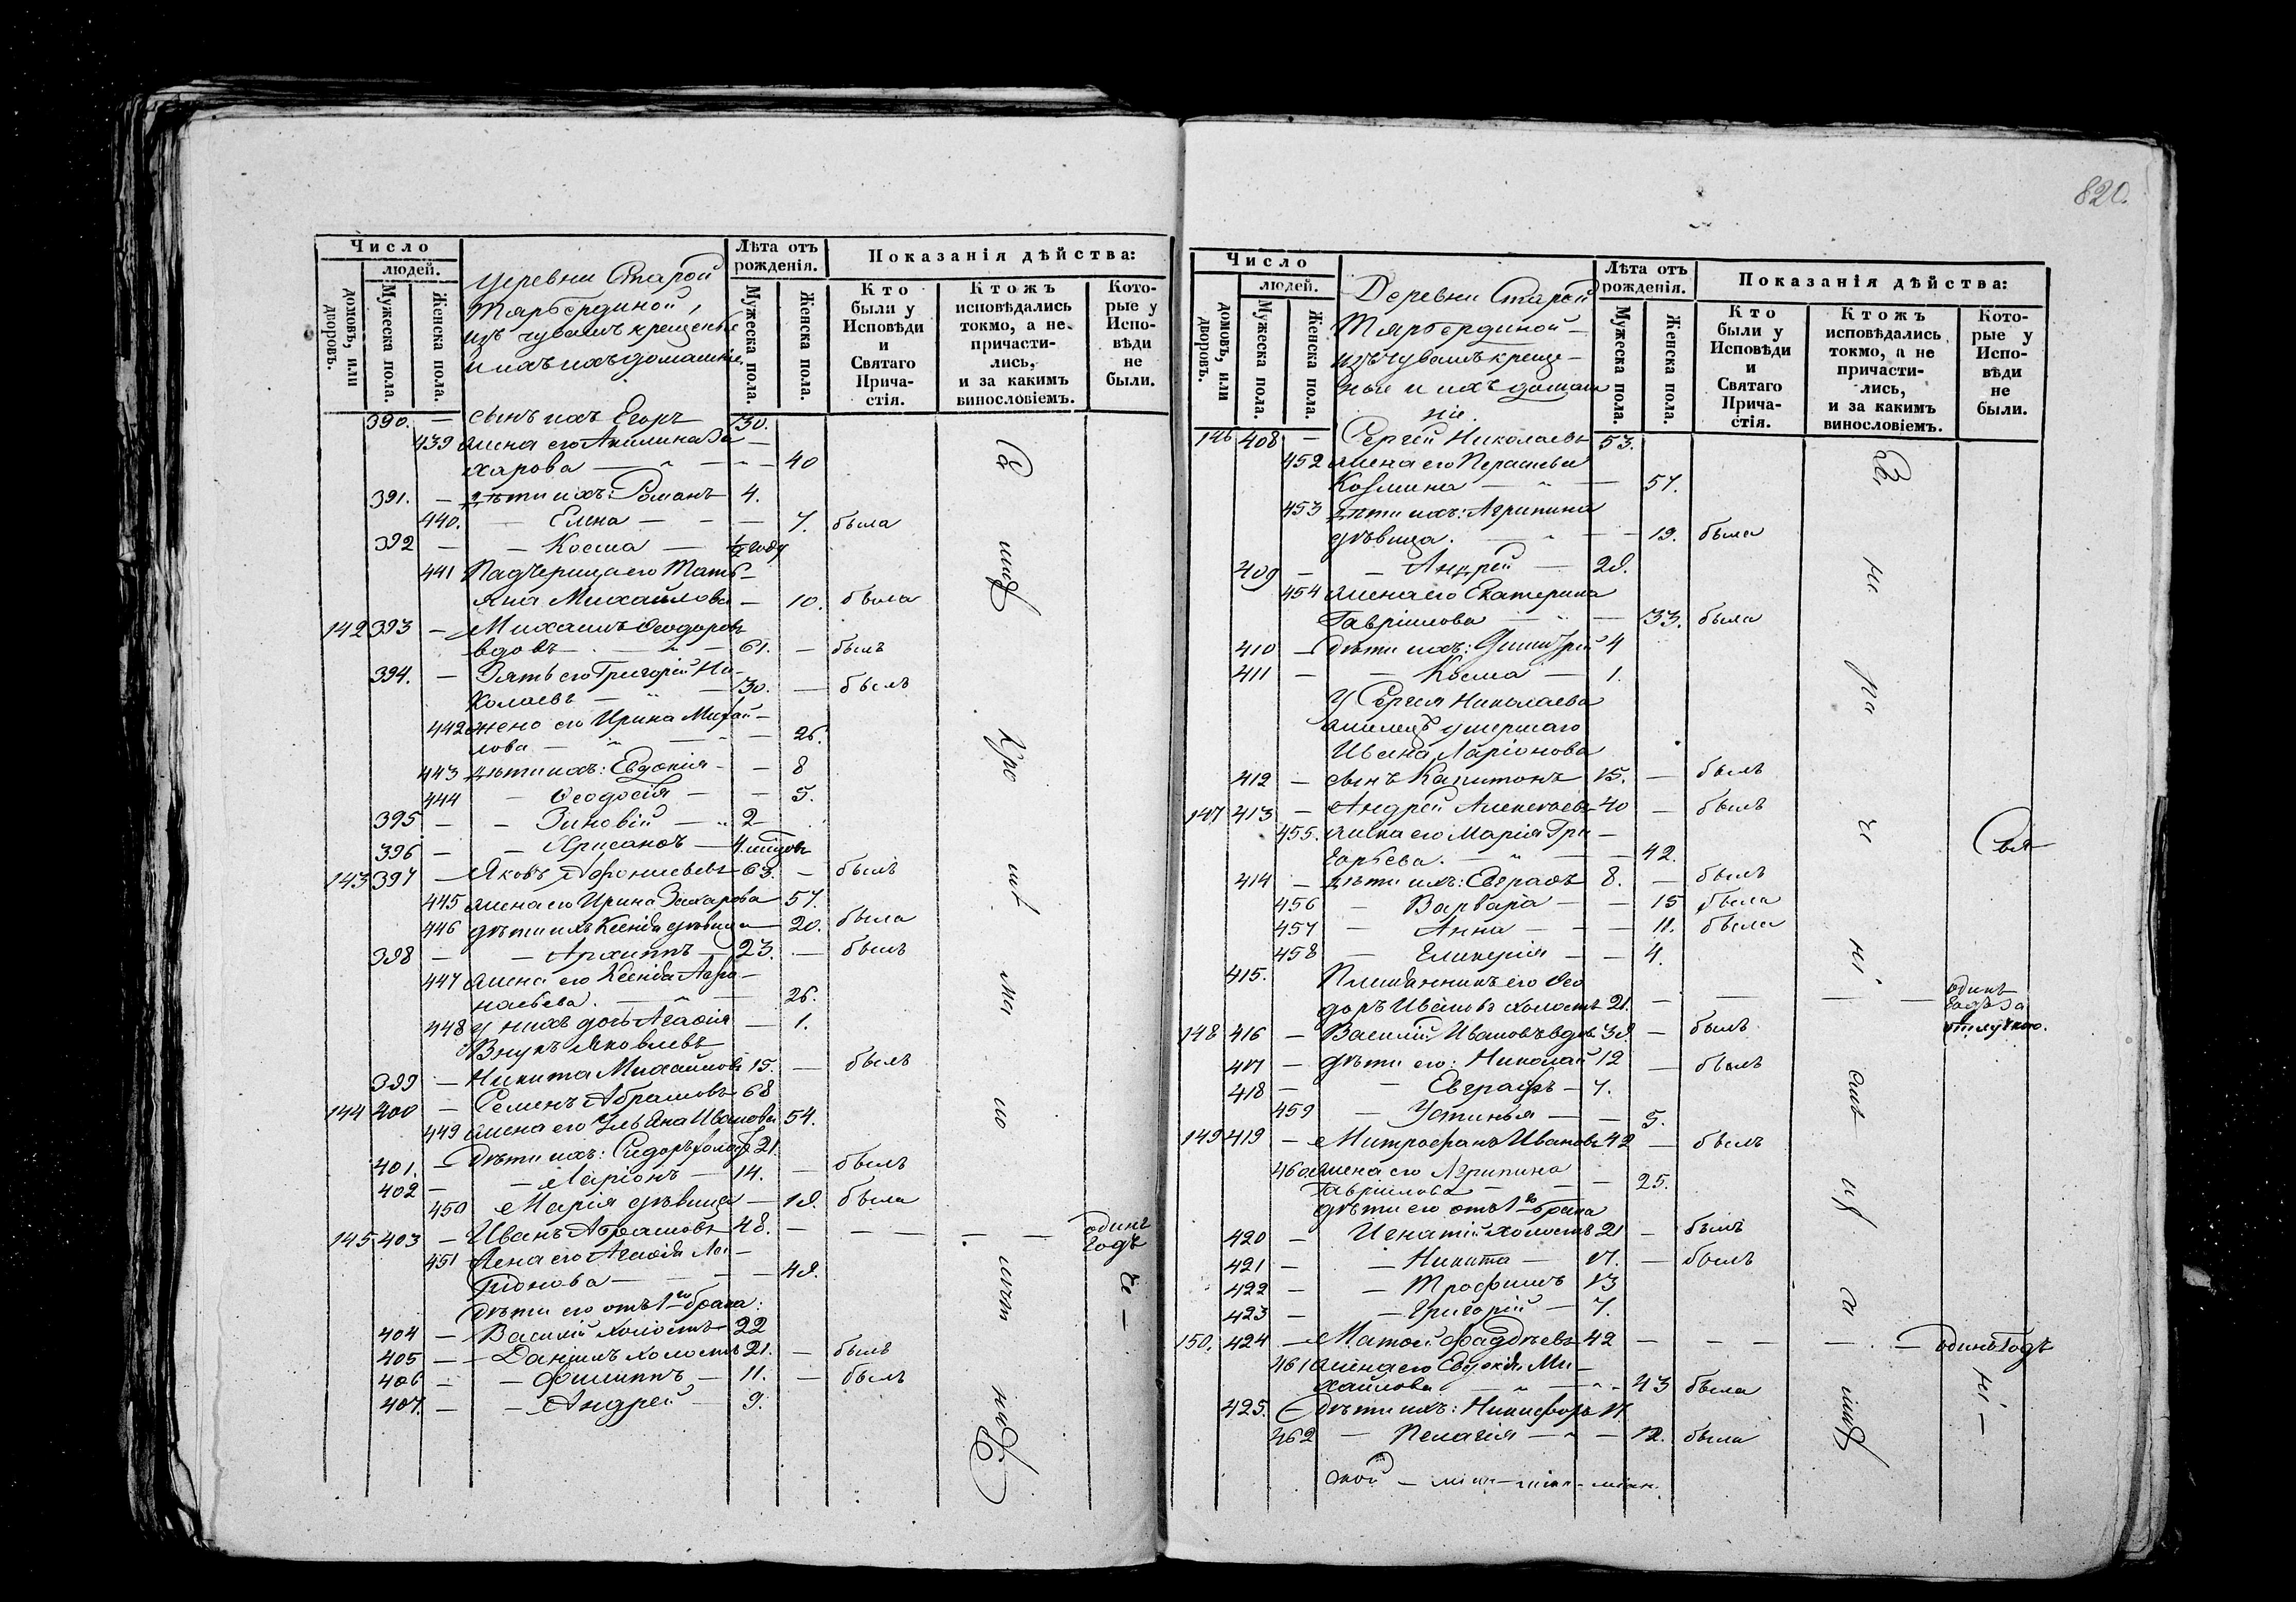 820.
Число
людей.
домовъ, или дворовъ.
Мужеска пола.
Женска пола.
деревни Старой
Тярбердиной,
изъ чувашъ крещеные
и ихъ домашніе.
Лѣта отъ рожденія.
Мужеска пола.
Женска пола.
Показанія дѣйства:
Кто были у Исповѣди и Святаго Прича-стія.
Ктожъ исповѣдались токмо, а не причасти-лись, и за какимъ винословіемъ.
Кото-рые у Испо-вѣди не были.
390. — сынъ ихъ Егоръ 30.
439 жена его Акилина За-
харова — 40
391. — дѣти ихъ: Романъ 4.
440. — Елена — 7. была
392 — Косма — 1/2 году
441 Падчерица его Тать-
яна Михайлова — 10. была
142 393 — Михаилъ Ѳеодоровъ
вдовъ — 61. — былъ
394. — Зять его Григорій Ни-
колаевъ — 30. — былъ
442 жена его Ирина Михай-
лова — 26.
443 дѣти ихъ: Евдокія — 8
444 — Ѳеодосія — 5.
395 — Зиновій — 2
396 — Хрисанѳъ —
143 397 — Яковъ Аѳонасьевъ 63. — былъ
445 жена его Ирина Захарова 57.
446 дѣти ихъ Ксенія дѣвица — 20. была
398 — Архиппъ — 23. — былъ
447 жена его Ксенія Аѳа-
насьева. — 26.
448 у нихъ дочь Агаѳія — 1.
Внукъ Яковлевъ
399 — Никита Михайловъ 15. — былъ
144 400 — Семенъ Абрамовъ 68
449 жена его Ульяна Иванова 54.
401. — Дѣти ихъ: Сидоръ холостъ 21
402 — Ларіонъ — 14. — былъ
450 Марія дѣвица — 18. была
145 403 — Иванъ Абрамовъ 48. — одинъ годъ
451 Жена его Агаѳія Ла-
ріонова — 48.
Дѣти его отъ 1го брака:
404 — Василій холостъ 22
405 — Даніилъ холостъ 21. — былъ
406 — Филиппъ — 11. — былъ
407. — Андрей — 9.
Число
людей.
домовъ, или дворовъ.
Мужеска пола.
Женска пола.
Деревни Старой
Тярбердиной
изъ чувашъ креще-
ные и ихъ домаш
ніе.
Лѣта отъ рожденія.
Мужеска пола.
Женска пола.
Показанія дѣйства:
Кто были у Исповѣди и Святаго Прича-стія.
Ктожъ исповѣдались токмо, а не причасти-лись, и за какимъ винословіемъ.
Кото-рые у Испо-вѣди не были.
146 408 — Сергей Николаевъ 53.
452 жена его Параскева
Козмина — 57.
453 дѣти ихъ: Агрипина
дѣвица. — 19. была
409 — Андрей — 28.
454 жена его Екатерина
Гавріилова — 33. была
410 — дѣти ихъ: Димитрій 4
411 — Косма — 1.
У Сергея Николаева
жилецъ умершаго
Ивана Ларіонова
412 — сынъ Капитонъ 15. — былъ
147 413 — Андрей Алексѣевъ 40 — былъ
455. жена его Марія Гри-
горьева. — 42.
414 — дѣти ихъ: Евграфъ 8. — былъ
456 — Варвара — 15 была
457 — Анна — 11. была
458 — Гликерія — 4.
415. Племянникъ его Ѳео
доръ Ивановъ холостъ 21. — одинъ годъ за отлучкою.
148 416 — Василій Ивановъ вдовъ 38. — былъ
417 — дѣти его: Николай 12 — былъ
418 — Евграфъ — 7.
459 — Устинья — 5.
149 419 — Митрофанъ Ивановъ 42 — былъ
460 жена его Агрипина
Гавріилова — 25.
дѣти его отъ 1го брака
420 — Игнатій холостъ 21 — былъ
421 — Никита — 17. — былъ
422 — Трофимъ 13
423 — Григорій — 7.
150. 424 — Матѳей Ѳаддѣевъ 42 — одинъ годъ
461 жена его Евдокія Ми-
хайлова — 43 была
425. — дѣти ихъ: Никифоръ 11.
462 — Пелагія — 12. была